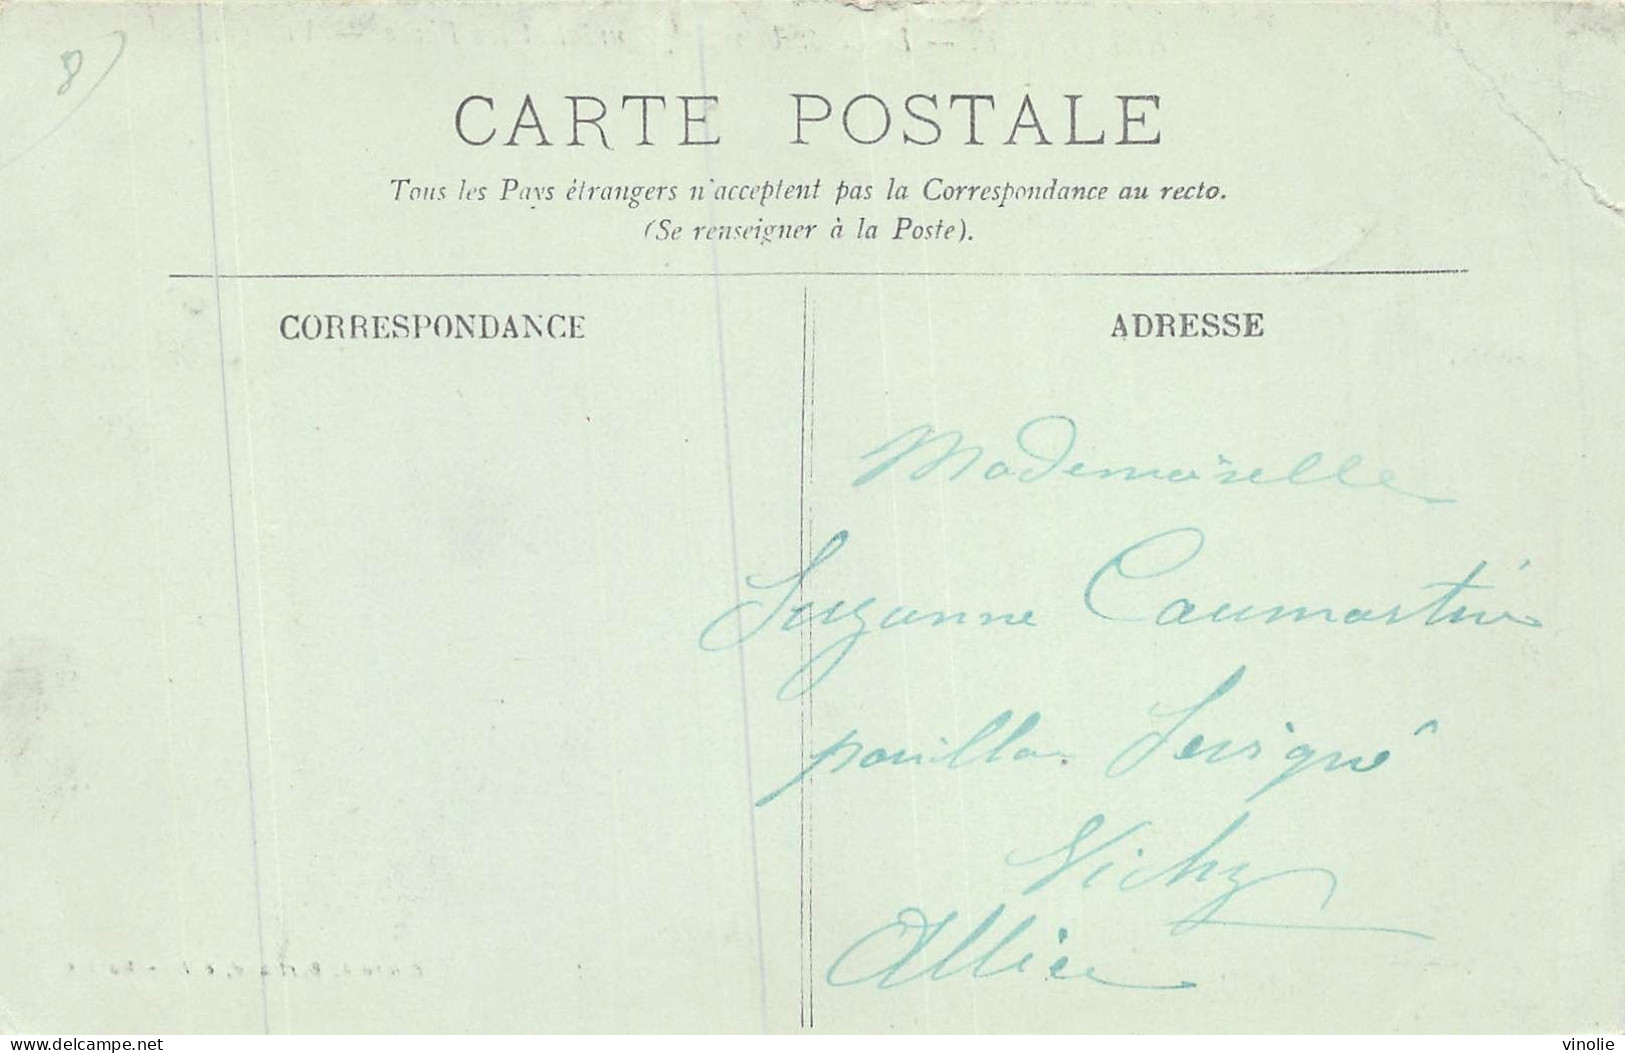 8
CARTE POSTALE
Tous les Pays étrangers n'acceptent pas la Correspondance au recto.
(Se renseigner à la Poste).
CORRESPONDANCE
ADRESSE
Mademoiselle
Suzanne Caumartin
pavillon Sévigné
Vichy
Allier
delcampe.net
vinolie